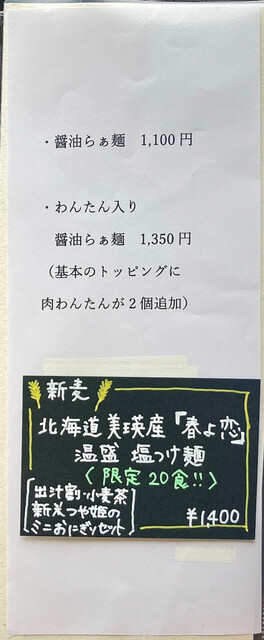 ・醤油らぁ麺 1,100円
・わんたん入り
醤油らぁ麺 1,350円
（基本のトッピングに
肉わんたんが２個追加）
新麦
北海道美瑛産「春よ恋」
温盛 塩つけ麺
〈限定20食!!〉
[出汁割・小麦茶
新米つや姫の
ミニおにぎりセット]
¥1,400